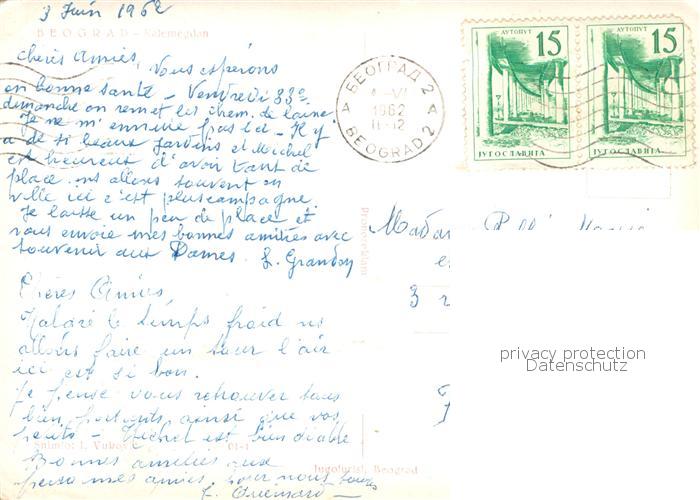 3 Juin 1962
BEOGRAD - Kalemegdan
Chères Amies,
Vous espérons
en bonne santé - Vendredi 33°
dimanche on remet les chem. de laine.
Je ne m'ennuie pas ici - Il y
a de si beaux jardins et Michel
est heureux d'avoir tant de
place. ns allons souvent en
ville ici c'est plus campagne.
Je laisse un peu de place et
vous envoie mes bonnes amitiés avec
souvenir aux Dames.
Chères Amies,
Malgré le temps froid ns
allons faire un tour l'air
ici est si bon.
Je pense vous retrouver tous
bien portants ainsi que vos
petits - Michel est bien diable
Bonnes amitiés aux
personnes amies, pour nous tous
Snimio: I. Vukov
01-1
Jugoturist, Beograd
БЕОГРАД 2
VI
1962
11-12
BEOGRAD 2
АУТОПУТ 15
ЈУГОСЛАВИЈА
АУТОПУТ 15
ЈУГОСЛАВИЈА
3
privacy protection
Datenschutz